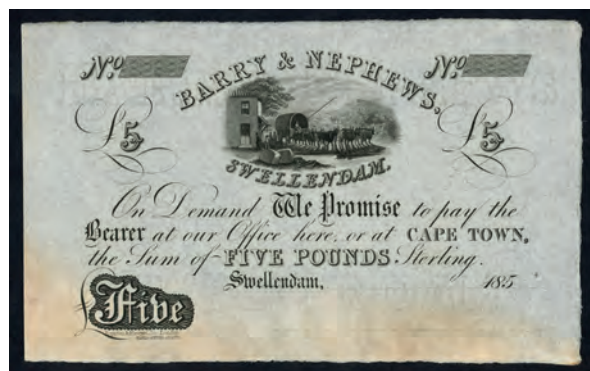 No No
BARRY & NEPHEWS.
£5 £5
SWELLENDAM.
On Demand We Promise to pay the
Bearer at our Office here, or at CAPE TOWN,
the Sum of FIVE POUNDS Sterling.
Swellendam, 185
£Five